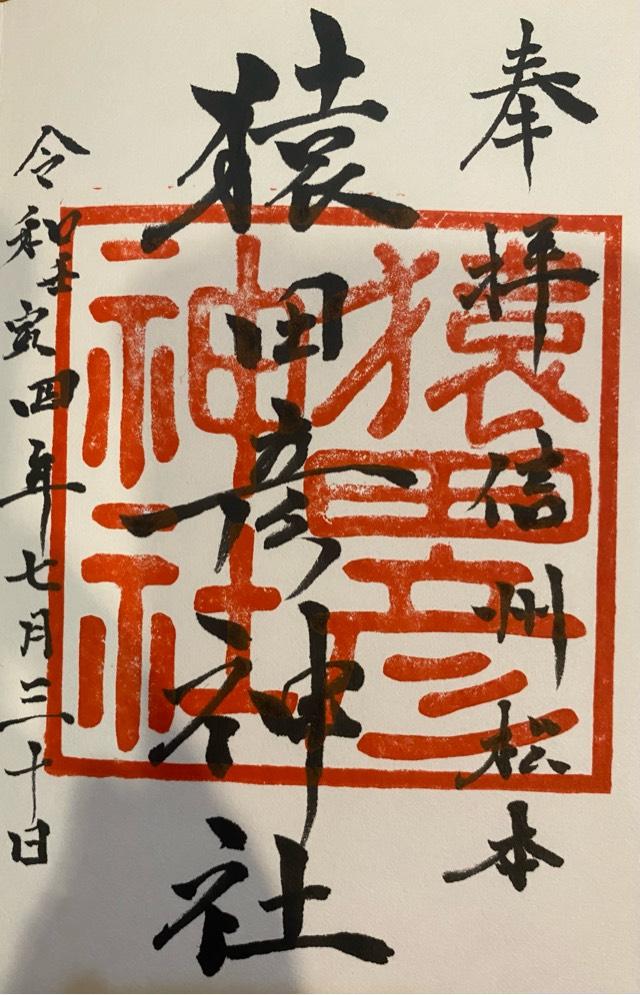 奉拝 信州松本
猿田彦神社
令和壬寅四年七月三十日
猿田彦
神社